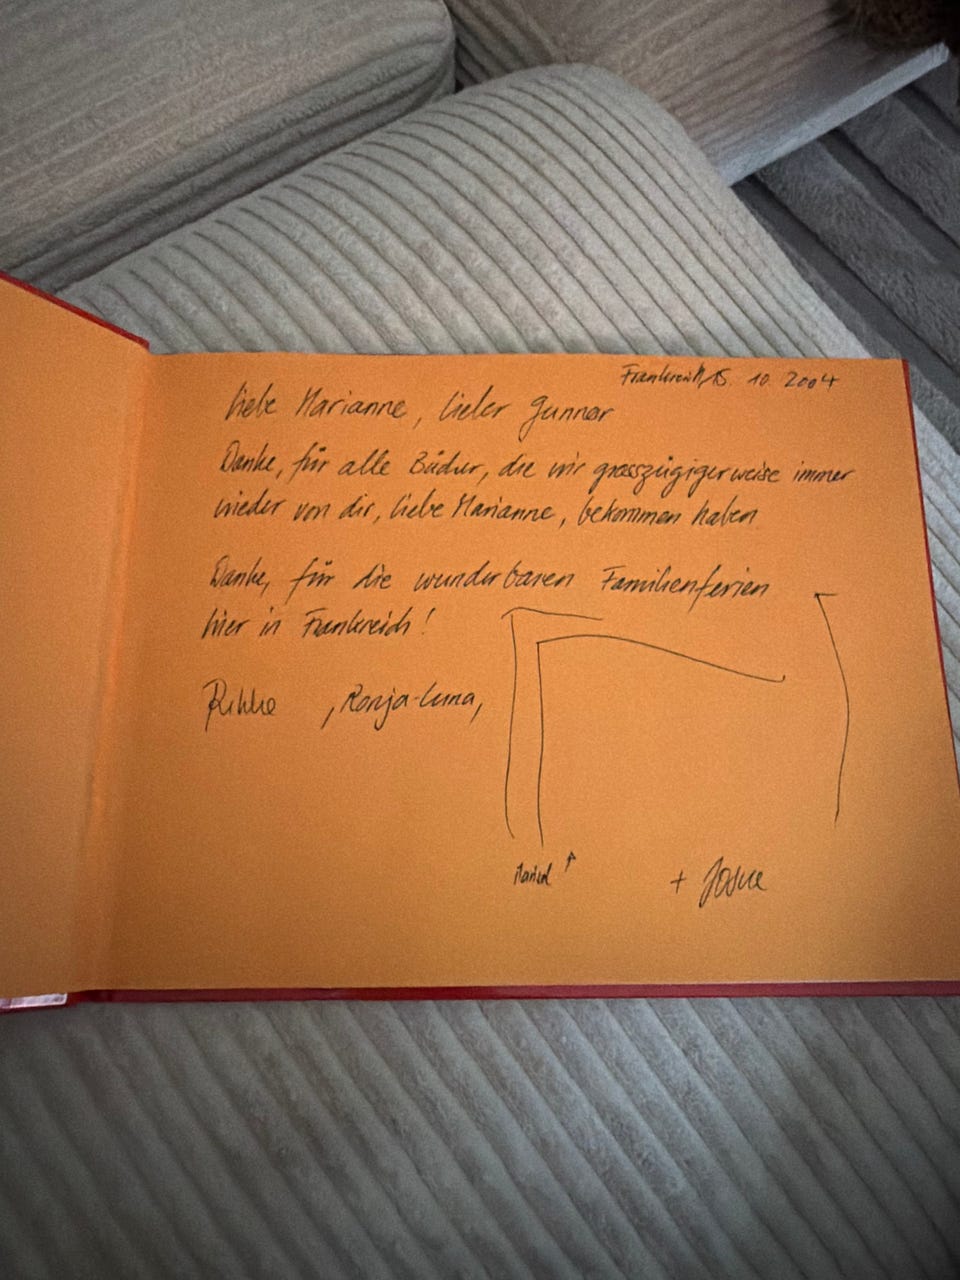 Frankreich, 15. 10. 2004
Liebe Marianne, lieber Gunnar
Danke, für alle Bücher, die wir grosszügigerweise immer
wieder von dir, liebe Marianne, bekommen haben
Danke, für die wunderbaren Familienferien
hier in Frankreich!
Rikke , Ronja-Luna,
+ Josue